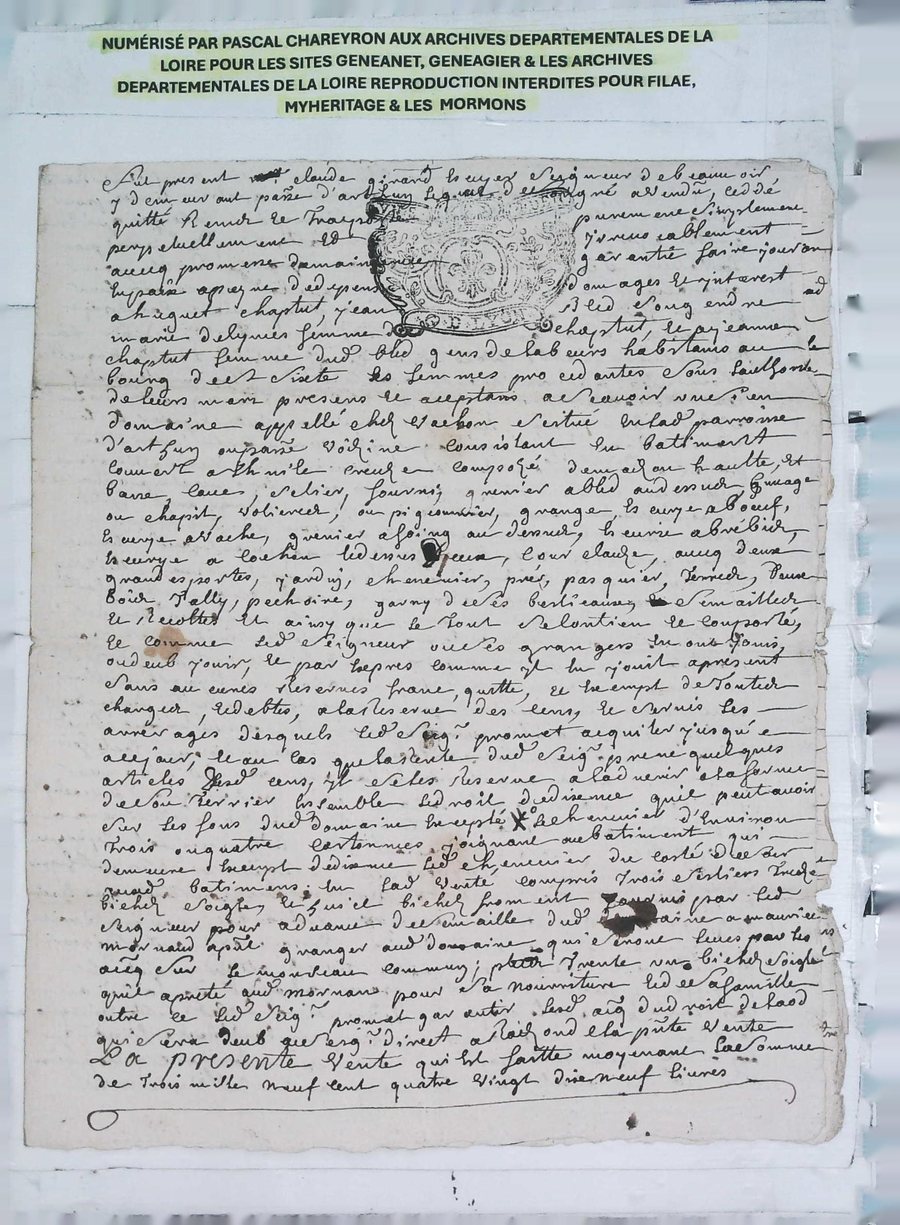 NUMÉRISÉ PAR PASCAL CHAREYRON AUX ARCHIVES DEPARTEMENTALES DE LA
LOIRE POUR LES SITES GENEANET, GENEAGIER & LES ARCHIVES
DEPARTEMENTALES DE LA LOIRE REPRODUCTION INTERDITES POUR FILAE,
MYHERITAGE & LES MORMONS
fut present claude girard Escuyer Seigneur de beauvoir
y demeurant parr̃e d'arthun Lequel de gré a vendu, ceddé
quitté Remis Et Transporte purement Simplement
perpetuellement Et Irrevocablement
avecq promesse de maintenue garantie faire jouir
En paix a peyne de depens domages Et Interest
a huguet chaptut, jean bled Son gendre
marie delignes femme d chaptut, Et a jeanne
chaptut femme dud bled gens de labeurs habitans au
bourg de St Sixte Les femmes procedantes Sous l'authorité
de leurs maris presens Et aceptans a scavoir un Sien
domaine appellé chez vachon Scitué En lad parroisse
d'arthun ou parr̃e voizine Consistant En batiments
couvert a thuile creuze composés de maizon haulte, Et
basse, cave, Selier, fournis, grenier a bled au dessus, Cuvage
ou chapit, volieres, ou pigeonnier, grange, Escurye a boeuf,
Escurye a vache, grenier a foing au dessus, Escurie a brebis,
Escurye a cochon au dessus cour clause, avecq deux
grandes portes, jardin, chenevier, prés, pasquier, Terres,
bois Tally, pechoire, garny de Ses bestieaux, Semailles
Et Recoltes Et ainsy que le Tout Se Contien Et Comporte,
Et comme led Seigneur ou Ses grangers En ont jouis,
ou deub jouir, Et par Expres comme Il En jouit apresent
Sans aucunes Reserves franc, quitte, Et Exempt de Toutes
charges, Et debtes, a la Reserve des cens, Et Servis Les
arrerages desquels led Seigr promet aquiter jusqu'a
ce jour, Et au cas que la rente dud Seigr prene quelques
articles desd cens, Il Se les Reserve a l'advenir a la forme
de Son Terrier Ensemble Le droit de disme quil peut avoir
Sur Les fons dud domaine Excepté le chenevier d'Environ
Trois ou quatre cartonnées joignant au batiment qui
demeure Exempt de disme led chenevier du costé de
batimens En lad vente compris Trois Sestiers Treize
bichets Seigle, Et huict bichets froment fournis par led
Seigneur pour advance de Semaille dud domaine a maurice
mornand apn̄t granger aud domaine, qui Seront leves par Les
acq̃ Sur Le monceau commun; plus Trente un bichets Seigle
quil a presté aud mornand pour Sa nourriture Et de Sa famille
outre ce led Seigr promet garantir lesd acq̃ du droit de laod
qui Sera deub au Seigr direct a Raizon de la pn̄te vente
La presente vente qui Est faitte moyenant La Somme
de Trois mille neuf cent quatre vingt dixneuf livres